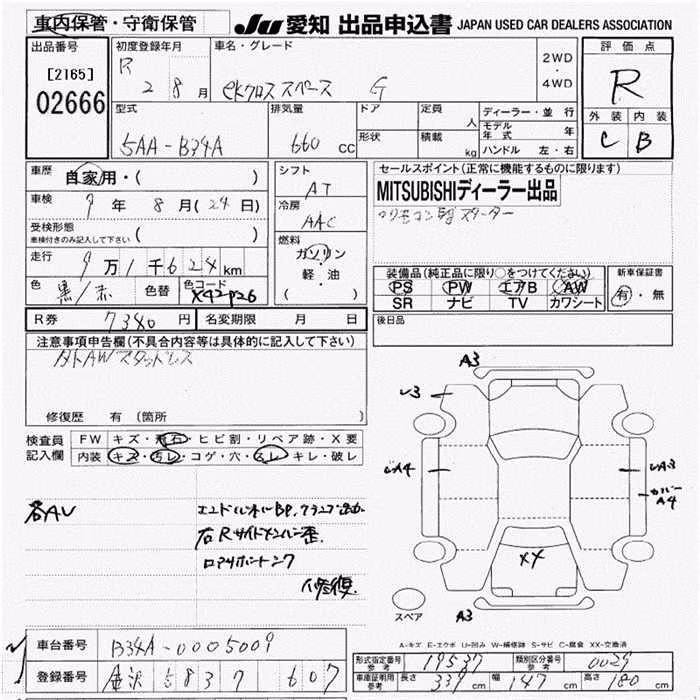 車内保管・守衛保管 JU 愛知 出品申込書 JAPAN USED CAR DEALERS ASSOCIATION
出品番号 初度登録年月 車名・グレード 評価点
[2165] R 2 8月 eKクロス スペース G 2WD・4WD R
02666
型式 排気量 ドア 定員 人 ディーラー・並行 外装 内装
5AA-B34A 660 CC 形状 積載 kg モデル年式 年 C B
ハンドル 左・右
車歴 自家用・( ) シフト セールスポイント(正常に機能するものに限ります)
AT MITSUBISHIディーラー出品
車検 9年 8月(24日) 冷房 リモコン スターター
受検形態 AAC
車検付きのみ記入して下さい ( ) 燃料
走行 9万1千624km ガソリン 装備品(純正品に限り○をつけてください) 新車保証書
・ PS PW エアB AW 有・無
色 黒/赤 色替 色コード X42P26 軽・油 SR ナビ TV カワシート
( )
R券 7380円 名変期限 月 日 後日品
注意事項申告欄(不具合内容等は具体的に記入して下さい)
社外AWスタッドレス
修復歴 有 (箇所
検査員 FW キズ・飛石・ヒビ割・リペア跡・X要
記入欄 内装 キズ・汚レ・コゲ・穴・スレ・キレ・破レ
A3
レ3
UA4 UA3
カバー
A4
XX
A3
スペア
各AU
右Rサイドメンバー歪
修復
A-キズ E-エクボ U-凹み W-補修跡 S-サビ C-腐食 XX-交換済
車台番号 B34A-0005009 形式指定番号 参考 19537 類別区分番号 参考 0029
登録番号 金沢 583 ア 607 車庫証明用 参考 長さ 339cm 幅 147cm 高さ 180cm